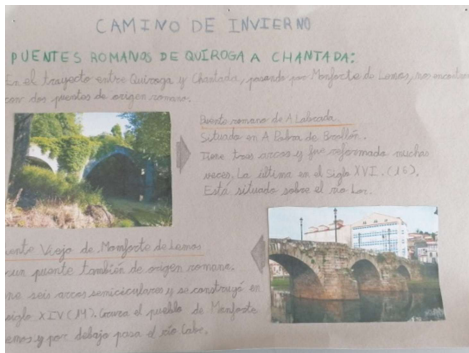 CAMINO DE INVIERNO
PUENTES ROMANOS DE QUIROGA A CHANTADA:
En el trayecto entre Quiroga y Chantada, pasando por Monforte de Lemos, nos
con dos puentes de origen romano.
Puente romano de A Labrada.
Situado en A Pobra de Brollón.
Tiene tres arcos y fue reformado muchas
veces, La última en el Siglo XVI. (16).
Está situado sobre el río Lor.
Viejo de Monforte de Lemos
puente también de origen romano.
seis arcos semicirculares y se construyó en
siglo XIV (14). Cruza el pueblo de Monforte
y por debajo pasa el río Cabe.